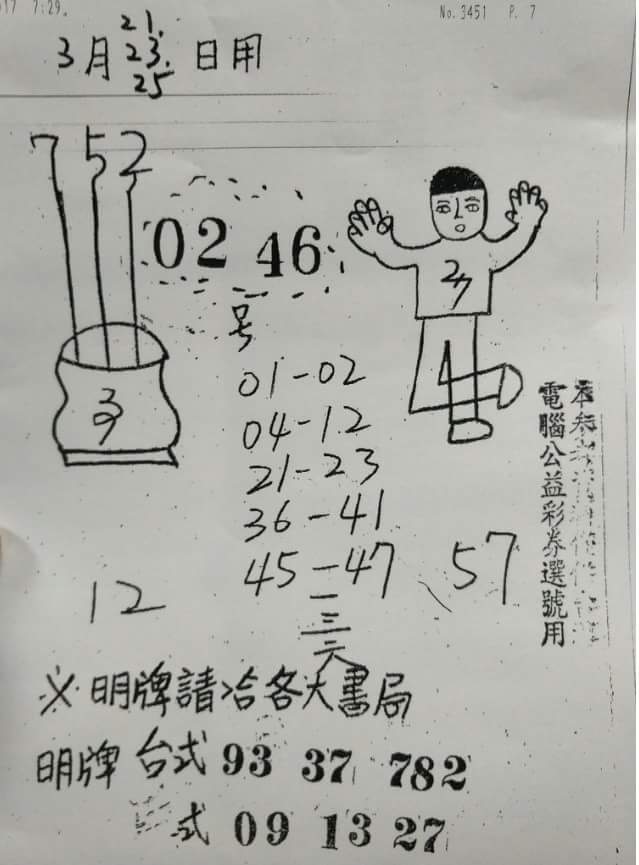 17 7:29.
No.3451 P. 7
21.
3月 23. 日用
25
7 5 2
02 46
27
号
01-02
04-12
21-23
36-41
45-47
57
12
一
三
六
電腦公益彩券選號用
※明牌請洽各大書局
明牌 台式 93 37 782
式 09 13 27